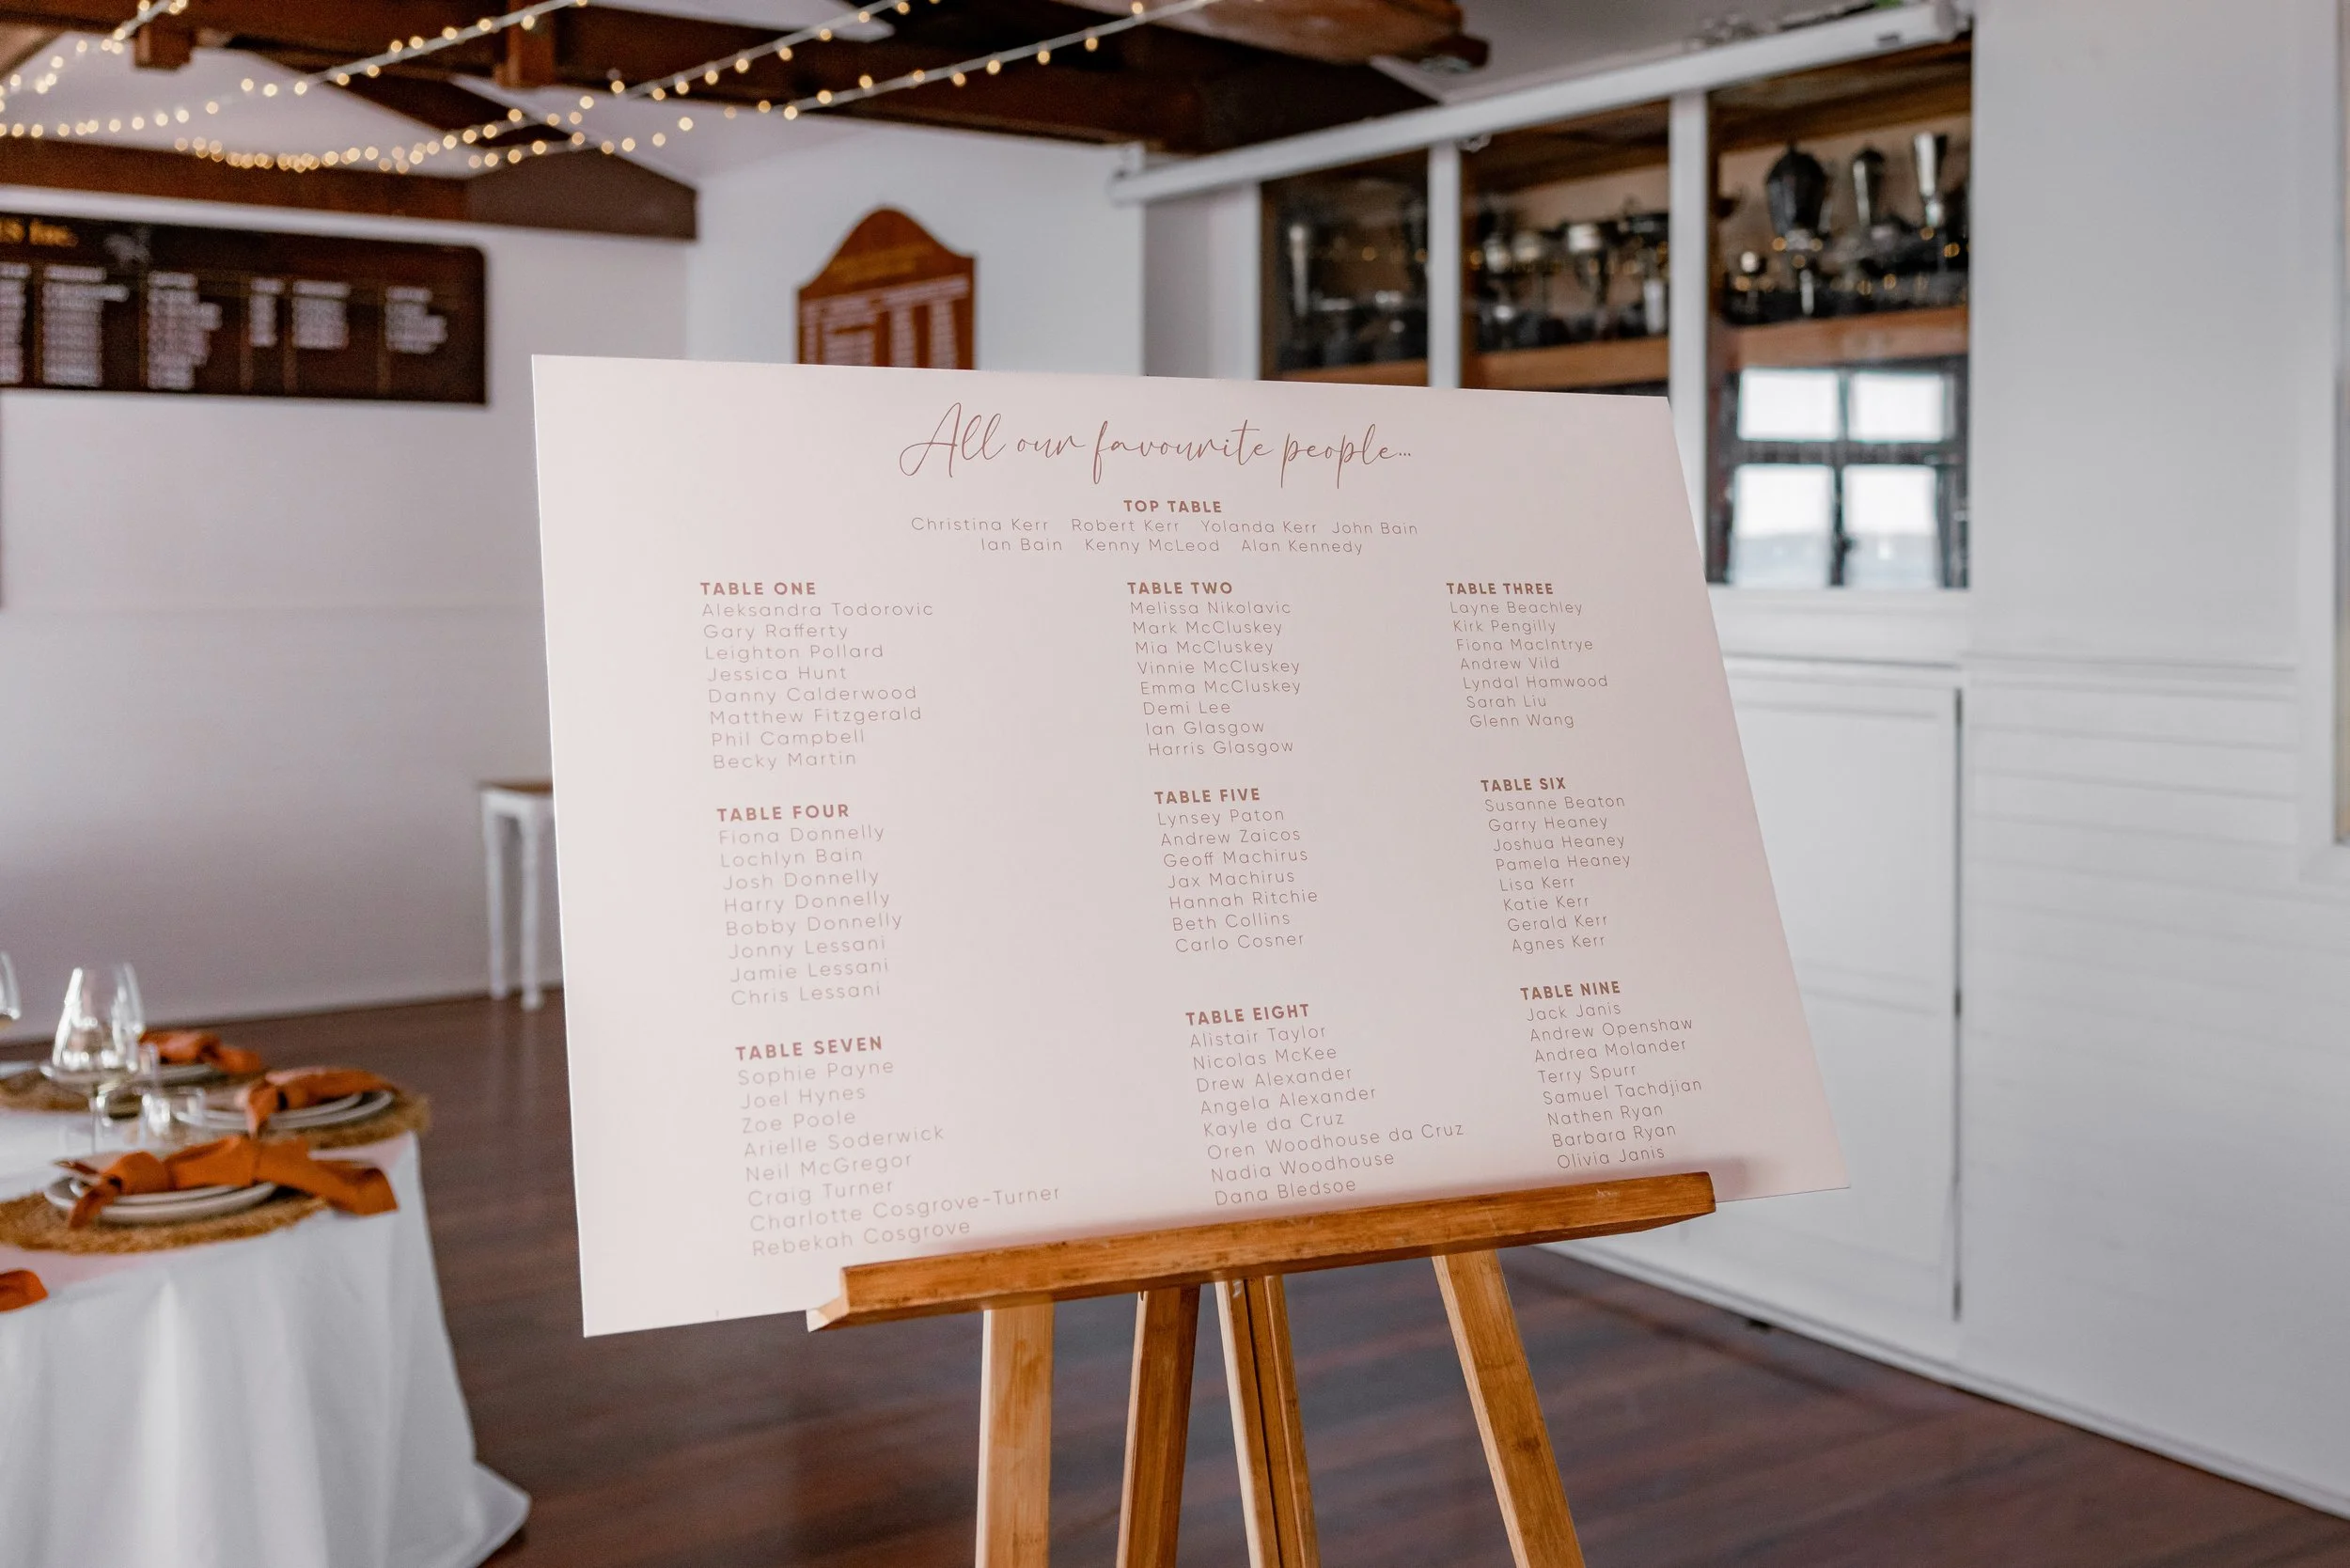 All our favourite people...
TOP TABLE
Christina Kerr Robert Kerr Yolanda Kerr John Bain
Ian Bain Kenny McLeod Alan Kennedy
TABLE ONE
Aleksandra Todorovic
Gary Rafferty
Leighton Pollard
Jessica Hunt
Danny Calderwood
Matthew Fitzgerald
Phil Campbell
Becky Martin
TABLE TWO
Melissa Nikolavic
Mark McCluskey
Mia McCluskey
Vinnie McCluskey
Emma McCluskey
Demi Lee
Ian Glasgow
Harris Glasgow
TABLE THREE
Layne Beachley
Kirk Pengilly
Fiona MacIntrye
Andrew Vild
Lyndal Hamwood
Sarah Liu
Glenn Wang
TABLE FOUR
Fiona Donnelly
Lochlyn Bain
Josh Donnelly
Harry Donnelly
Bobby Donnelly
Jonny Lessani
Jamie Lessani
Chris Lessani
TABLE FIVE
Lynsey Paton
Andrew Zaicos
Geoff Machirus
Jax Machirus
Hannah Ritchie
Beth Collins
Carlo Cosner
TABLE SIX
Susanne Beaton
Garry Heaney
Joshua Heaney
Pamela Heaney
Lisa Kerr
Katie Kerr
Gerald Kerr
Agnes Kerr
TABLE SEVEN
Sophie Payne
Joel Hynes
Zoe Poole
Arielle Soderwick
Neil McGregor
Craig Turner
Charlotte Cosgrove-Turner
Rebekah Cosgrove
TABLE EIGHT
Alistair Taylor
Nicolas McKee
Drew Alexander
Angela Alexander
Kayle da Cruz
Oren Woodhouse da Cruz
Nadia Woodhouse
Dana Bledsoe
TABLE NINE
Jack Janis
Andrew Openshaw
Andrea Molander
Terry Spurr
Samuel Tachdjian
Nathen Ryan
Barbara Ryan
Olivia Janis